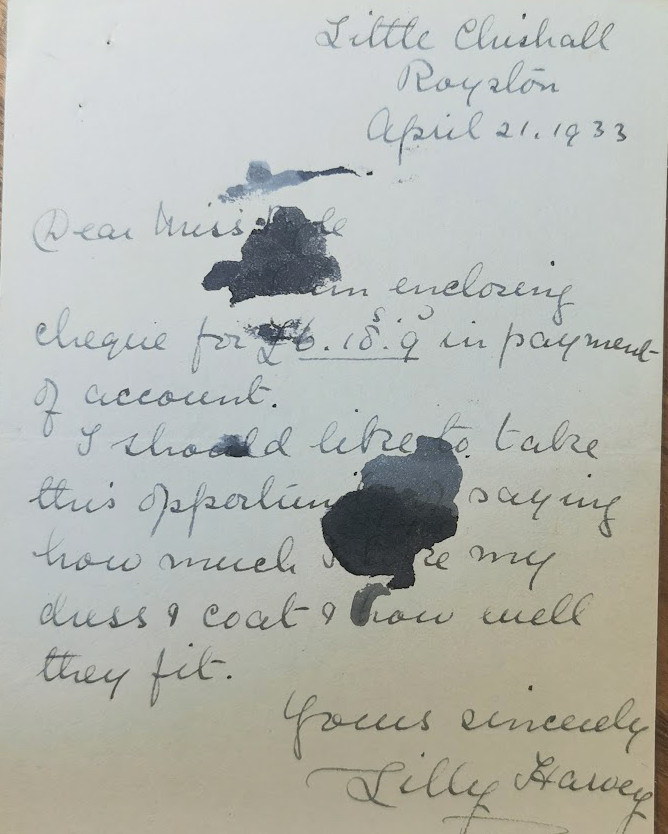 Little Chishall
Royston
April 21. 1933
Dear Miss
enclosing
cheque for £6. 18.s 9.D in payment
of account.
I should like to take
this saying
how much my
dress & coat & how well
they fit.
Yours sincerely
Lilly Harvey